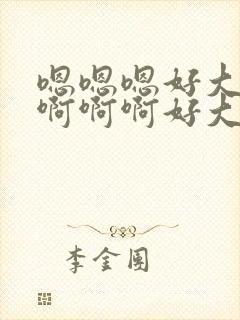 嗯嗯嗯好大
啊啊啊好大
李金围